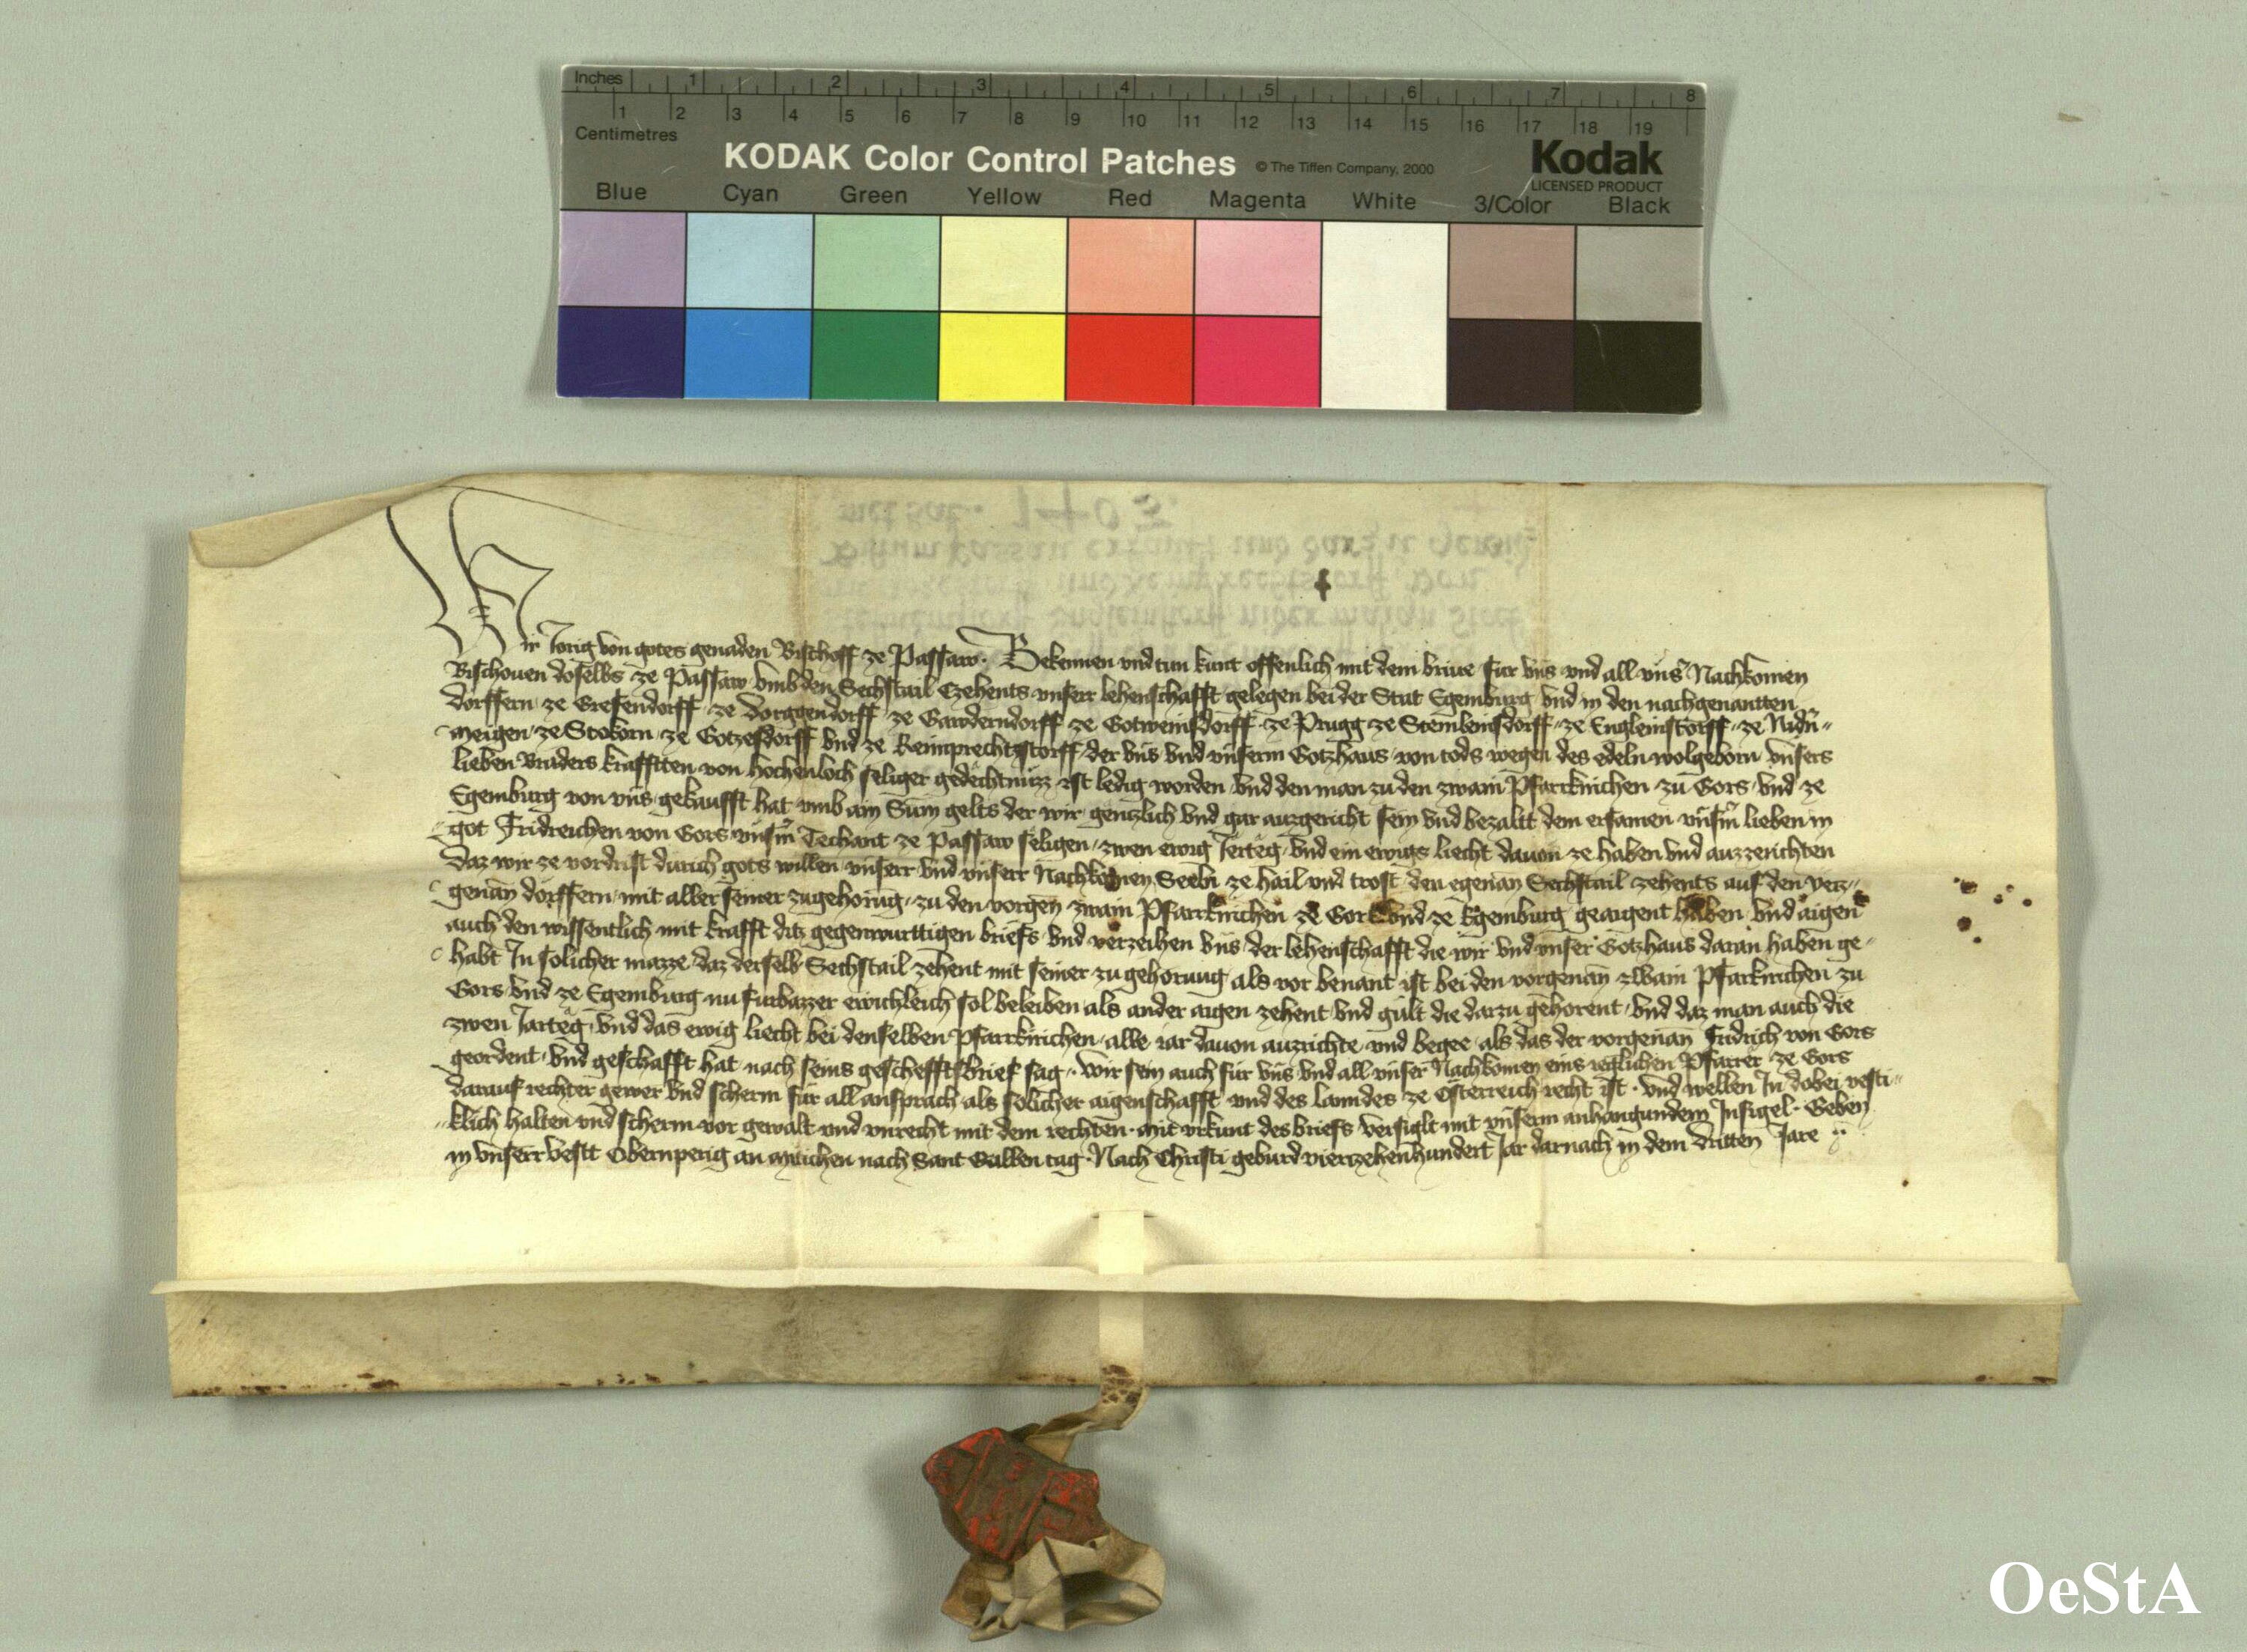 Inches 1 2 3 4 5 6 7 8
1 2 3 4 5 6 7 8 9 10 11 12 13 14 15 16 17 18 19
Centimetres
KODAK Color Control Patches © The Tiffen Company, 2000 Kodak
LICENSED PRODUCT
Blue Cyan Green Yellow Red Magenta White 3/Color Black
Wir Jorig von gotes genaden Bischoff ze Passaw. Bekennen vnd tun kunt offenlich mit dem briue fur vns vnd all vnser Nachkomen
Bischouen doselbs ze Passaw vmb den Sechstail Czehents vnserr lehenschafft gelegen bei der Stat Egemburg vnd in den nachgenantten
dorffern ze Grefendorff ze Dorggendorff ze Gawderndorff ze Gotweinsdorff ze Prugg ze Stemleinsdorff ze Engleinstorff ze Nidern
meigen ze Stokorn ze Gotzesdorff vnd ze Reimprechtzstorff der vns vnd vnserm Gotzhaus von tods wegen des edeln wolgeborn vnsers
lieben Bruders krafftten von hochenloch seliger gedechtnüzz ist ledig worden vnd den man zu den zwain Pfarrkirchen zu Gors vnd ze
Egemburg von vns gekaufft hat vmb ain Sum gelts der wir genczlich vnd gar auzgericht sein vnd bezaltt dem ersamen vnserm lieben in
got Fridreichen von Gors vnserm Techant ze Passaw seligen zwen ewig Jerteg vnd ein ewigs liecht dauon ze haben vnd auzzerichten
Daz wir ze vordrist durich gots willen vnserr vnd vnserr Nachkomen Seeln ze hail vnd trost den egenan Sechstail zehents auf den verz
genan dorffern mit aller seiner zugehorug zu den vorgen zwain Pfarrkirchen ze Gors vnd ze Egemburg geaigent haben vnd aigen
auch den wissentlich mit krafft ditz gegenwurttigen briefs vnd verzeihen vns der lehenschafft die wir vnd vnser Gotzhaus daran haben ge
habt In solicher mazze daz derselb Sechstail zehent mit seiner zu gehorung als vor benant ist bei den vorgenan zwain Pfarkirchen zu
Gors vnd ze Egemburg nu furbazzer ewichleich sol beleiben als ander aigen zehent vnd gült die darzu gehorent vnd daz man auch die
zwen Jarteg vnd das ewig liecht bei denselben Pfarrkirichen alle iar dauon auzrichte vnd begee als das der vorgenan Fridrich von Gors
geordent vnd geschafft hat nach seins gescheffts brief sag. Wir sein auch für vns vnd all vnser Nachkomen eins ieglichen Pfarrer ze Gors
darauf rechter gewer vnd scherm für all ansprach als solicher aigenschafft vnd des lanndes ze Osterreich recht ist. vnd wellen In dobei vesti
klich halten vnd scherm vor gewalt vnd vnrecht mit dem rechten. mit vrkunt des briefs versiglt mit vnserm anhangundem Insigel. Geben
in vnserr vestt Obernperg an mitichen nach Sant Gallen tag. Nach Christi geburd vierczehenhundert Jar darnach in dem dritten Jare
OeStA